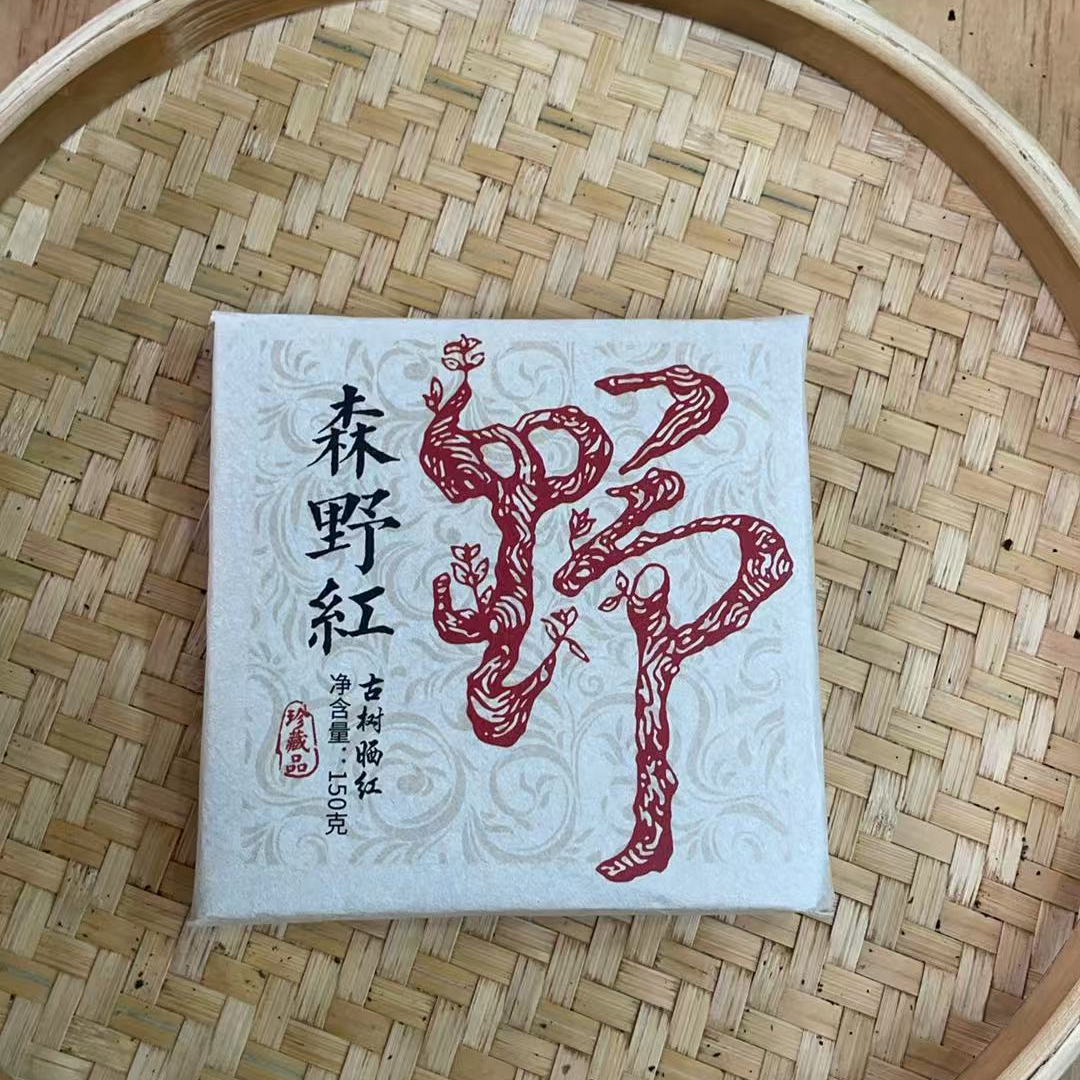 野
森野紅
古树晒红
净含量：150克
珍藏品